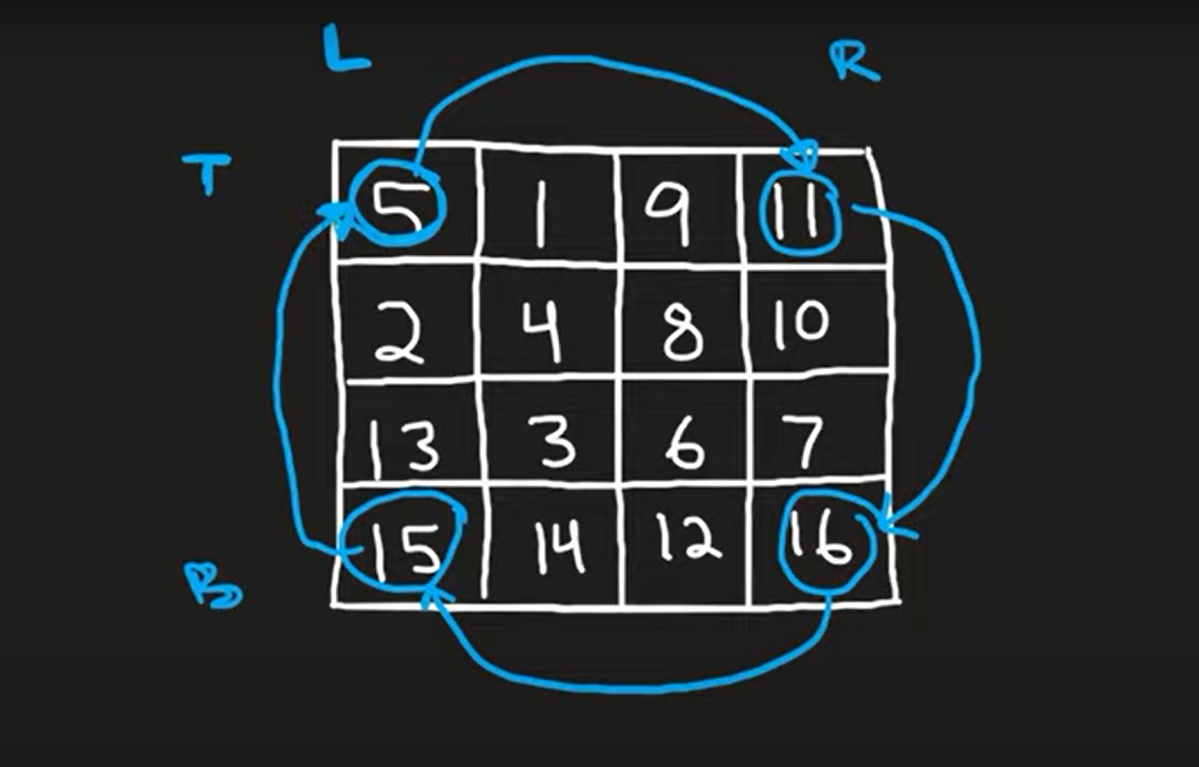 L R
T
5 1 9 11
2 4 8 10
13 3 6 7
15 14 12 16
B